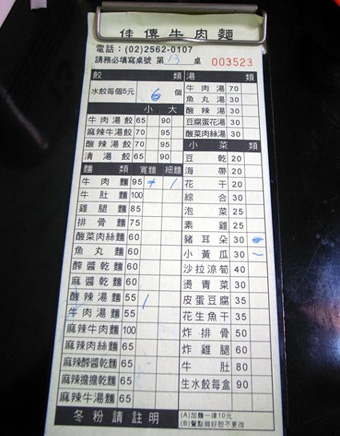 佳傳牛肉麵
電話：(02)2562-0107
請務必填寫桌號 第 13 桌 003523
餃類
水餃每個5元 6 個
小 大
牛肉湯餃 65 90
麻辣牛湯餃 70
酸辣湯餃 70 90
清湯餃 65 90
麵類 寬麵 細麵
牛肉麵 95
牛肚麵 100
雞腿麵 85
排骨麵 75
酸菜肉絲麵 60
魚丸麵 60
酢醬乾麵 60
麻醬乾麵 60
酸辣湯麵 55
牛肉湯麵 55
麻辣牛肉麵 100
麻辣肉絲麵 65
麻辣酢醬乾麵 65
麻辣擔擔乾麵 65
麻辣牛湯麵 65
湯類
牛肉湯 70
魚丸湯 30
酸辣湯 30
豆腐蛋花湯 30
酸菜肉絲湯 30
小菜類
豆乾 20
海帶 20
花干 20
綜合 30
泡菜 25
素雞 25
豬耳朵 30
小黃瓜 30
沙拉涼筍 40
燙青菜 30
皮蛋豆腐 35
花生魚干 35
炸排骨 50
炸雞腿 60
牛肚 80
生水餃每盒 90
冬粉請註明
(A)加麵一律10元
(B)餐點做好恕不更改